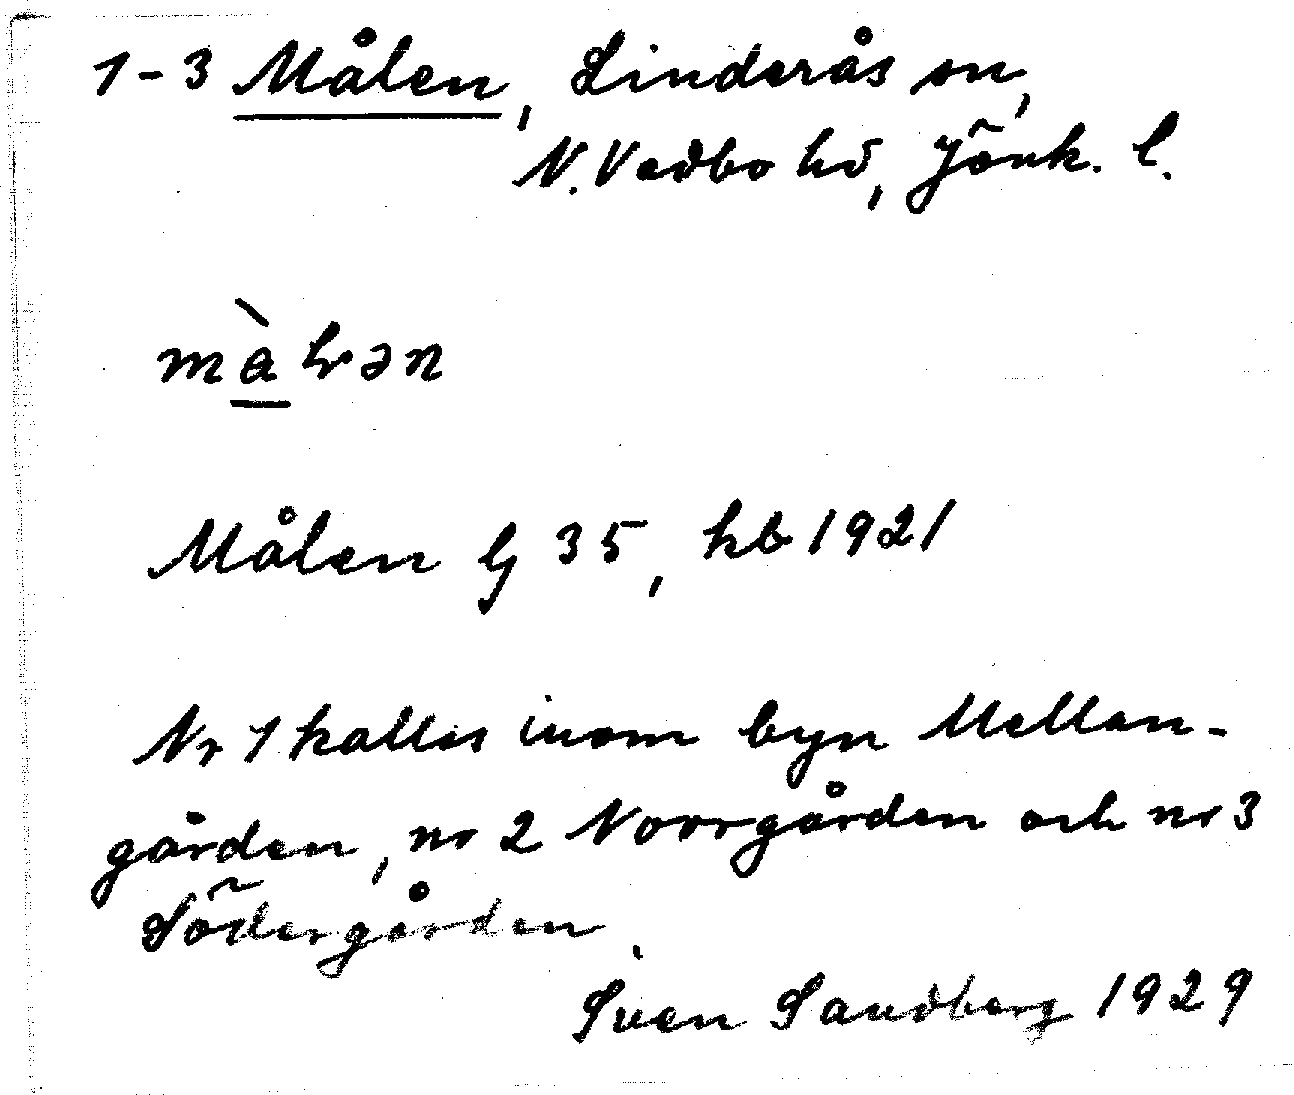 1-3 Målen, Linderås sn,
N. Vedbo hd, Jönk. l.
Målen Lj 35, hb 1921
Nr 1 kallas inom byn Mellan-
gården, nr 2 Norrgården och nr 3
Södergården.
Sven Sandberg 1929